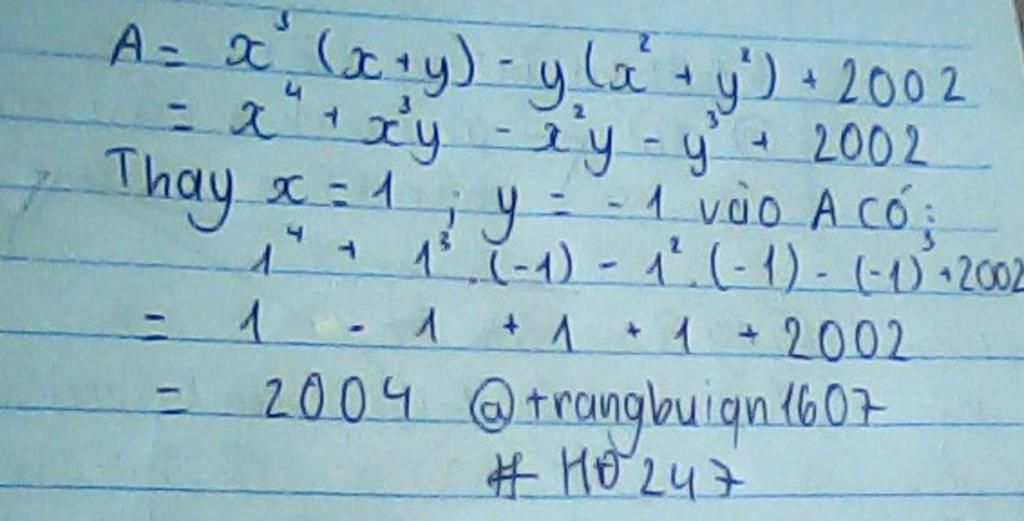 A = x³ (x + y) - y (x² + y²) + 2002
= x⁴ + x³y - x²y - y³ + 2002
Thay x = 1 ; y = -1 vào A có:
1⁴ + 1³.(-1) - 1².(-1) - (-1)³ + 2002
= 1 - 1 + 1 + 1 + 2002
= 2004 @trangbuiqn1607
# HĐ247